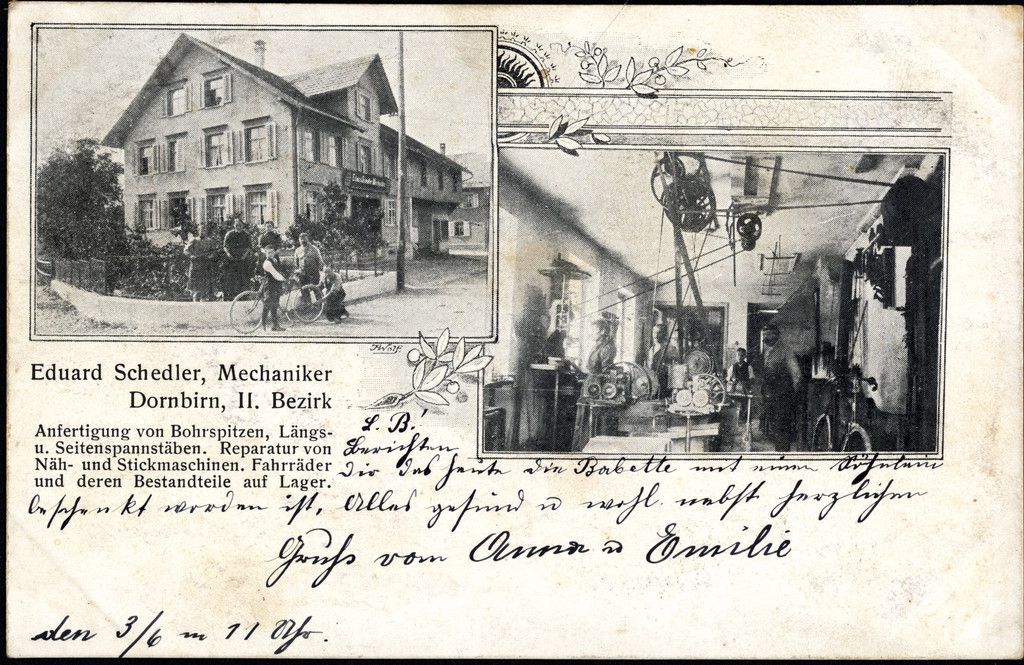 Wolf.
Eduard Schedler, Mechaniker
Dornbirn, II. Bezirk
Anfertigung von Bohrspitzen, Längs-
u. Seitenspannstäben. Reparatur von
Näh- und Stickmaschinen. Fahrräder
und deren Bestandteile auf Lager.
L. B.
Berichten
Dir das heute die Babette mit einem Söhnlein
beschenkt worden ist, Alles gesund u wohl. nebst herzlichen
Gruß vom Anna u Emilie
den 3/6 m 11 Uhr.